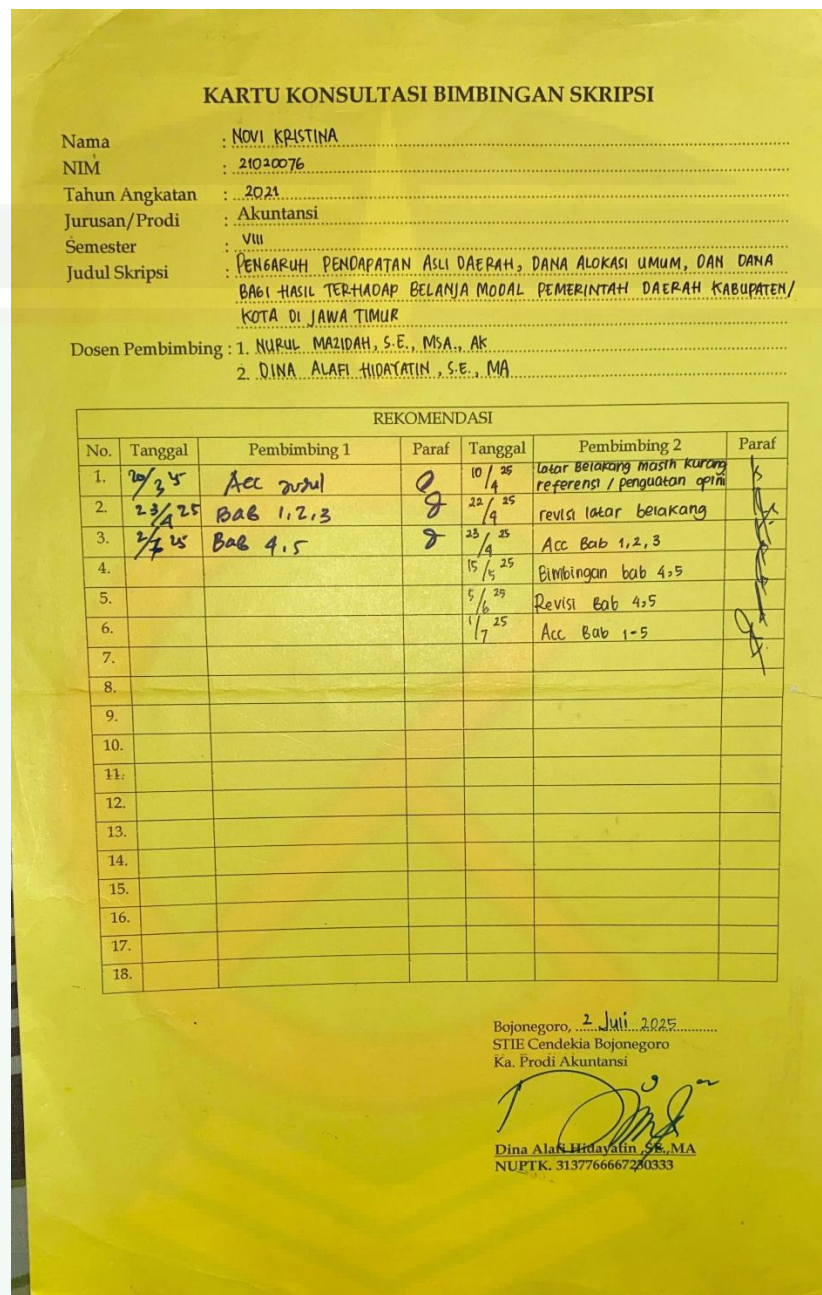 KARTU KONSULTASI BIMBINGAN SKRIPSI
Nama : NOVI KRISTINA
NIM : 21020076
Tahun Angkatan : 2021
Jurusan/Prodi : Akuntansi
Semester : VIII
Judul Skripsi : PENGARUH PENDAPATAN ASLI DAERAH, DANA ALOKASI UMUM, DAN DANA
BAGI HASIL TERHADAP BELANJA MODAL PEMERINTAH DAERAH KABUPATEN/
KOTA DI JAWA TIMUR
Dosen Pembimbing : 1. NURUL MAZIDAH, S.E., MSA., AK
2. DINA ALAFI HIDAYATIN, S.E., MA
REKOMENDASI
No. Tanggal Pembimbing 1 Paraf Tanggal Pembimbing 2 Paraf
1. 20/3 25 Acc judul 10/4 25 Latar Belakang masih kurang
referensi / penguatan opini
2. 23/4 25 BAB 1,2,3 22/4 25 revisi latar belakang
3. 2/7 25 BAB 4,5 23/4 25 Acc Bab 1,2,3
4. 15/5 25 Bimbingan bab 4,5
5. 5/6 25 Revisi Bab 4,5
6. 1/7 25 Acc Bab 1-5
7.
8.
9.
10.
11.
12.
13.
14.
15.
16.
17.
18.
Bojonegoro, 2 Juli 2025
STIE Cendekia Bojonegoro
Ka. Prodi Akuntansi
Dina Alafi Hidayatin ,SE.,MA
NUPTK. 3137766667230333